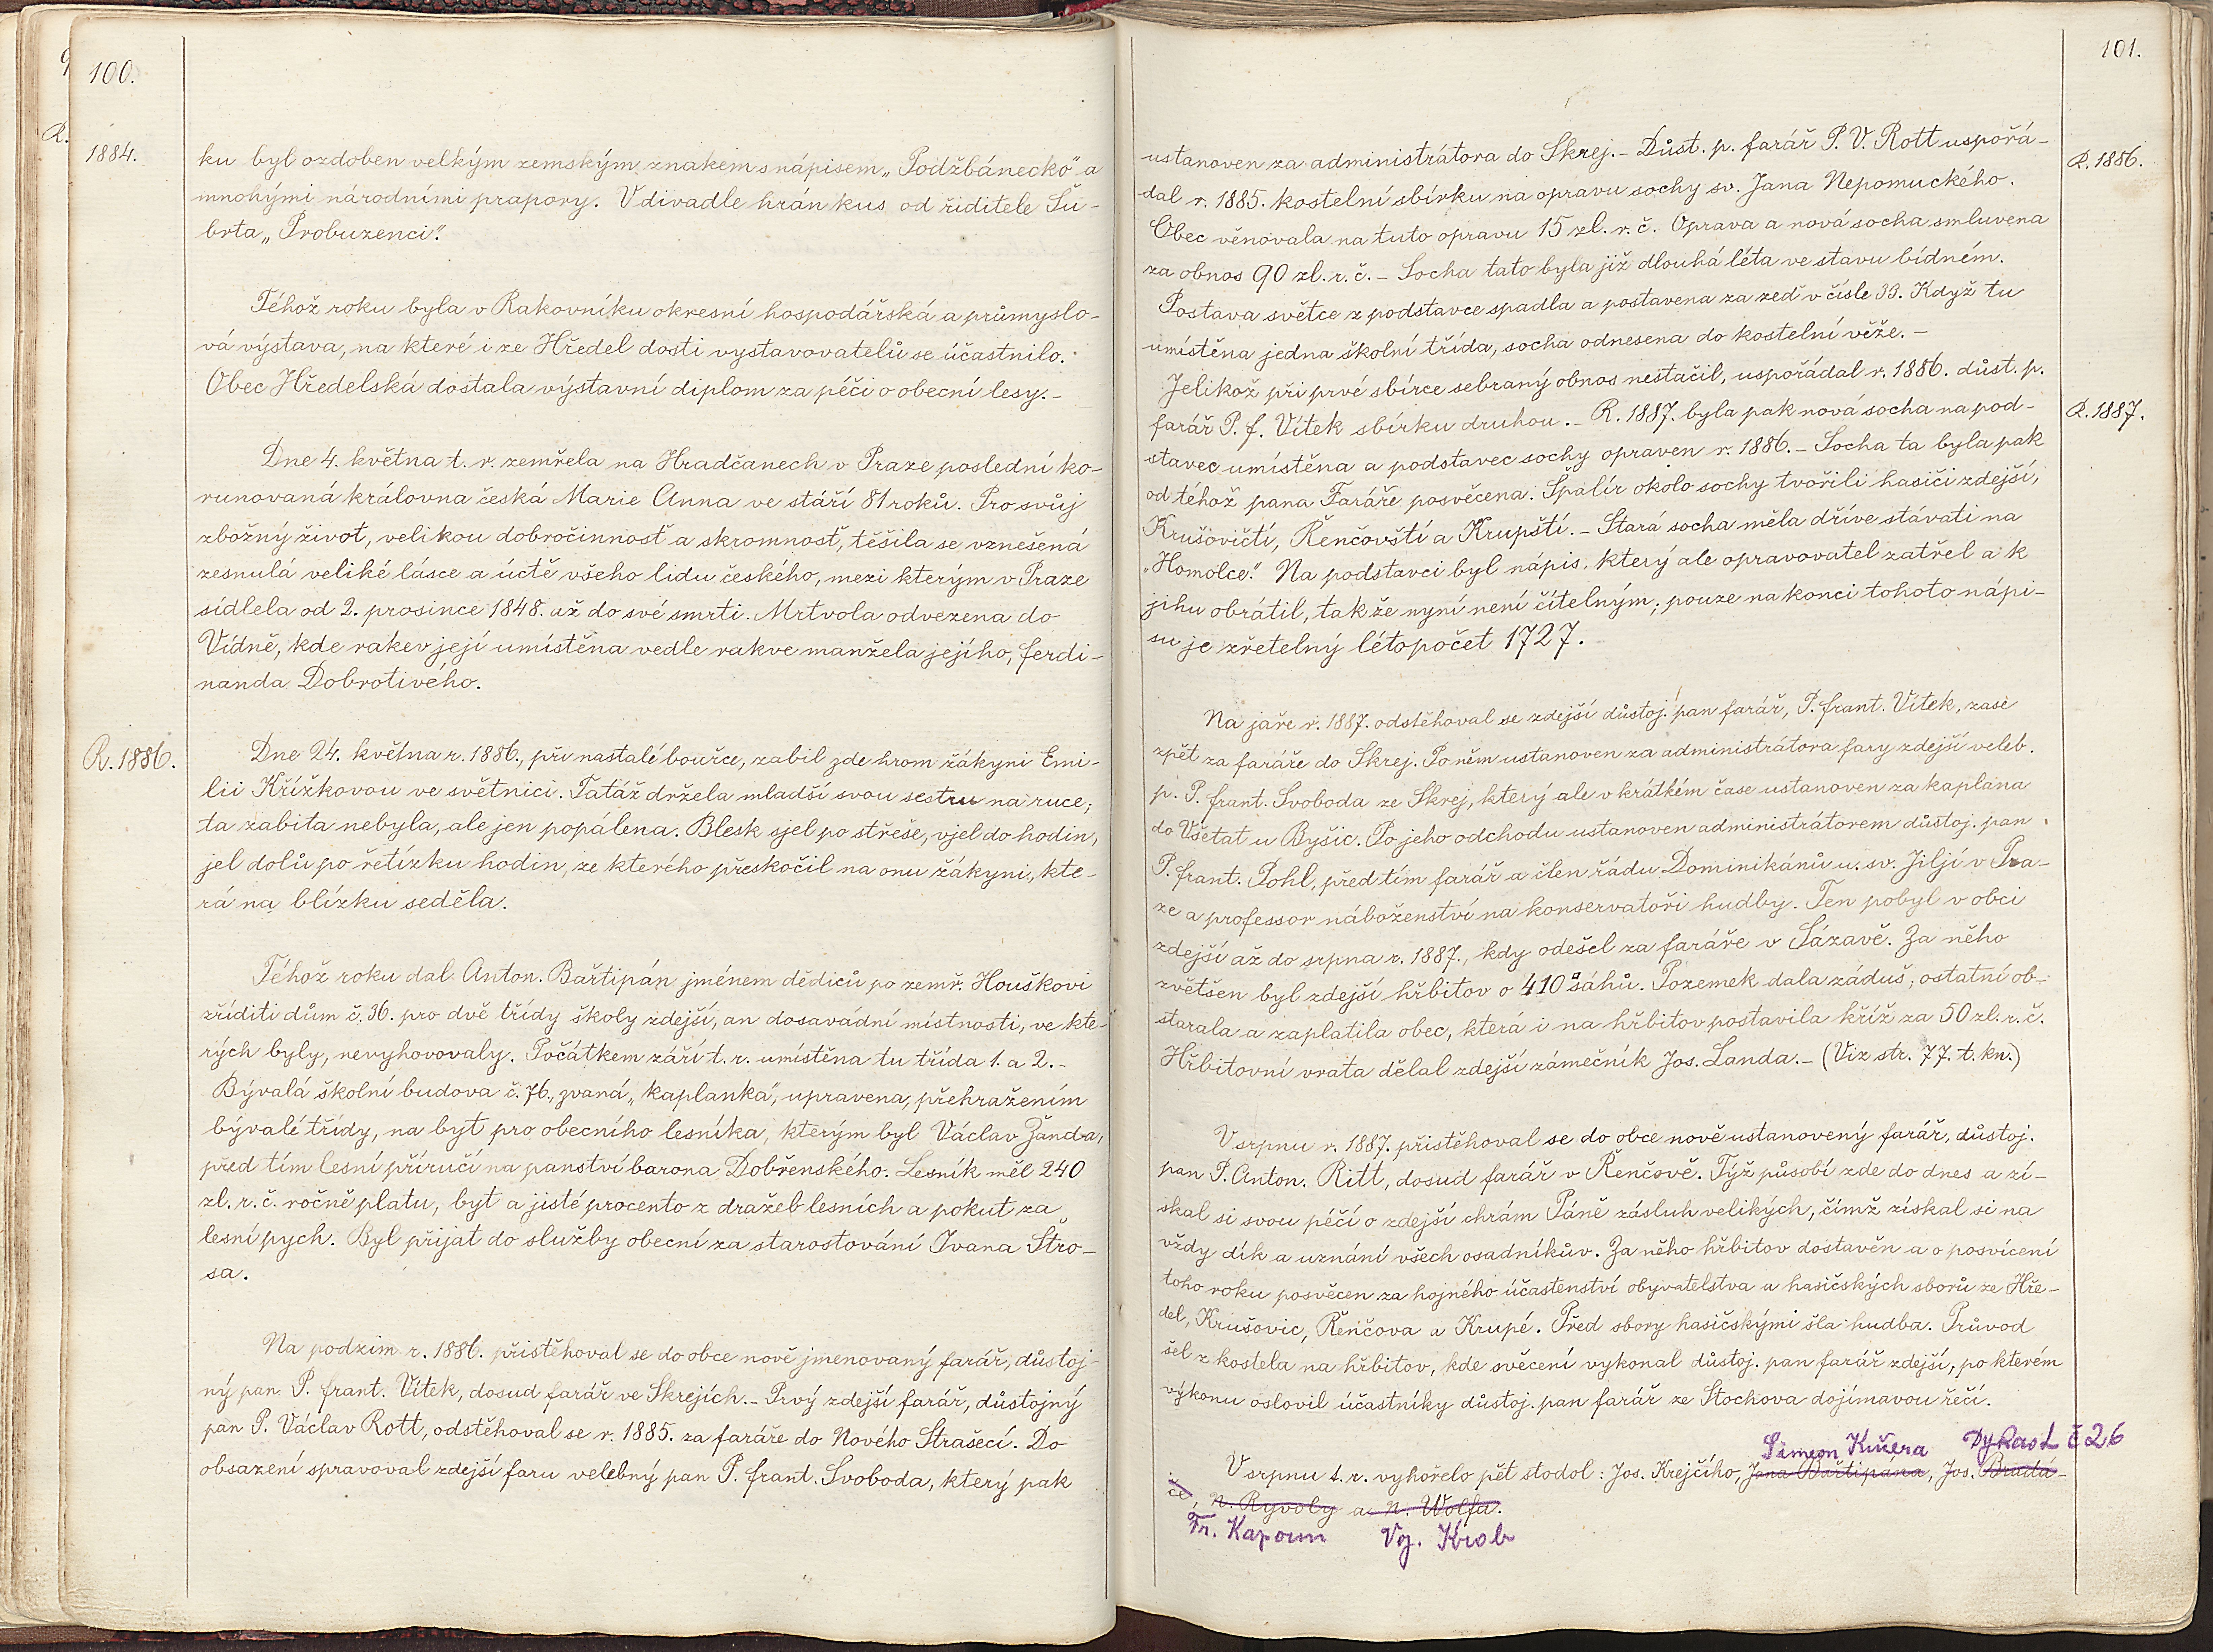 100.
1884.
ku byl ozdoben velkým zemským znakem s nápisem „Podžbánecko" a
mnohými národními prapory. V divadle hrán kus od řiditele Šu-
brta „Probuzenci".
Téhož roku byla v Rakovníku okresní hospodářská a průmyslo-
vá výstava, na které i ze Hředel dosti vystavovatelů se účastnilo.
Obec Hředelská dostala výstavní diplom za péči o obecní lesy.-
Dne 4. května t. r. zemřela na Hradčanech v Praze poslední ko-
runovaná královna česká Marie Anna ve stáří 81 roků. Pro svůj
zbožný život, velikou dobročinnosť a skromnosť, těšila se vznešená
zesnulá veliké lásce a úctě všeho lidu českého, mezi kterým v Praze
sídlela od 2. prosince 1848. až do své smrti. Mrtvola odvezena do
Vídně, kde rakev její umístěna vedle rakve manžela jejího, Ferdi-
nanda Dobrotivého.
R. 1886.
Dne 24. května r. 1886., při nastalé bouřce, zabil zde hrom žákyni Emi-
lii Křížkovou ve světnici. Tatáž držela mladší svou sestru na ruce;
ta zabita nebyla, ale jen popálena. Blesk sjel po střeše, vjel do hodin,
jel dolů po řetízku hodin, ze kterého přeskočil na onu žákyni, kte-
rá na blízku seděla.
Téhož roku dal Anton. Bařtipán jménem dědiců po zemř. Houškovi
zříditi dům č. 36. pro dvě třídy školy zdejší, an dosavádní místnosti, ve kte-
rých byly, nevyhovovaly. Počátkem září t. r. umístěna tu třída 1. a 2.-
Bývalá školní budova č. 76., zvaná „kaplanka", upravena, přehražením
bývalé třídy, na byt pro obecního lesníka, kterým byl Václav Žanda,
před tím lesní příručí na panství barona Dobřenského. Lesník měl 240
zl. r. č. ročně platu, byt a jisté procento z dražeb lesních a pokut za
lesní pych. Byl přijat do služby obecní za starostování Ivana Štro-
sa.
Na podzim r. 1886. přistěhoval se do obce nově jmenovaný farář, důstoj-
ný pan P. Frant. Vítek, dosud farář ve Skrejích.- Prvý zdejší farář, důstojný
pan P. Václav Rott, odstěhoval se r. 1885. za faráře do Nového Strašecí. Do
obsazení spravoval zdejší faru velebný pan P. Frant. Svoboda, který pak
101.
R. 1886.
ustanoven za administrátora do Skrej.- Důst. p. farář P. V. Rott uspořá-
dal r. 1885. kostelní sbírku na opravu sochy sv. Jana Nepomuckého.
Obec věnovala na tuto opravu 15 zl. r. č. Oprava a nová socha smluvena
za obnos 90 zl. r. č.- Socha tato byla již dlouhá léta ve stavu bídném.
Postava světce z podstavce spadla a postavena za zeď v čísle 33. Když tu
umístěna jedna školní třída, socha odnesena do kostelní věže.-
Jelikož při prvé sbírce sebraný obnos nestačil, uspořádal r. 1886. důst. p.
R. 1887.
farář P. F. Vítek sbírku druhou.- R. 1887. byla pak nová socha na pod-
stavec umístěna a podstavec sochy opraven r. 1886.- Socha ta byla pak
od téhož pana Faráře posvěcena. Špalír okolo sochy tvořili hasiči zdejší,
Krušovičtí, Řenčovští a Krupští.- Stará socha měla dříve stávati na
„Homolce." Na podstavci byl nápis, který ale opravovatel zatřel a k
jihu obrátil, takže nyní není čitelným; pouze na konci tohoto nápi-
su je zřetelný létopočet 1727.
Na jaře r. 1887. odstěhoval se zdejší důstoj. pan farář, P. Frant. Vítek, zase
zpět za faráře do Skrej. Po něm ustanoven za administrátora fary zdejší veleb.
p. P. Frant. Svoboda ze Skrej, který ale v krátkém čase ustanoven za kaplana
do Všetat u Byšic. Po jeho odchodu ustanoven administrátorem důstoj. pan
P. Frant. Pohl, před tím farář a člen řádu Dominikánů u sv. Jiljí v Pra-
ze a professor náboženství na konservatoři hudby. Ten pobyl v obci
zdejší až do srpna r. 1887., kdy odešel za faráře v Sázavě. Za něho
zvětšen byl zdejší hřbitov o 410 □ sáhů. Pozemek dala záduš; ostatní ob-
starala a zaplatila obec, která i na hřbitov postavila kříž za 50 zl. r. č.
Hřbitovní vrata dělal zdejší zámečník Jos. Landa.- (Viz str. 77. t. kn.)
V srpnu r. 1887. přistěhoval se do obce nově ustanovený farář, důstoj.
pan P. Anton. Ritt, dosud farář v Řenčově. Týž působí zde do dnes a zí-
skal si svou péčí o zdejší chrám Páně zásluh velikých, čímž získal si na
vždy dík a uznání všech osadníkův. Za něho hřbitov dostavěn a o posvícení
toho roku posvěcen za hojného účastenství obyvatelstva a hasičských sborů ze Hře-
del, Krušovic, Řenčova a Krupé. Před sbory hasičskými šla hudba. Průvod
šel z kostela na hřbitov, kde svěcení vykonal důstoj. pan farář zdejší, po kterém
výkonu oslovil účastníky důstoj. pan farář ze Stochova dojímavou řečí.
Simeon Kučera Dykast č 26
V srpnu t. r. vyhořelo pět stodol: Jos. Krejčího, Jana Bařtipána, Jos. Bradá-
če, N. Ryvoly a N. Wolfa.
Fr. Kapoun Voj. Krob